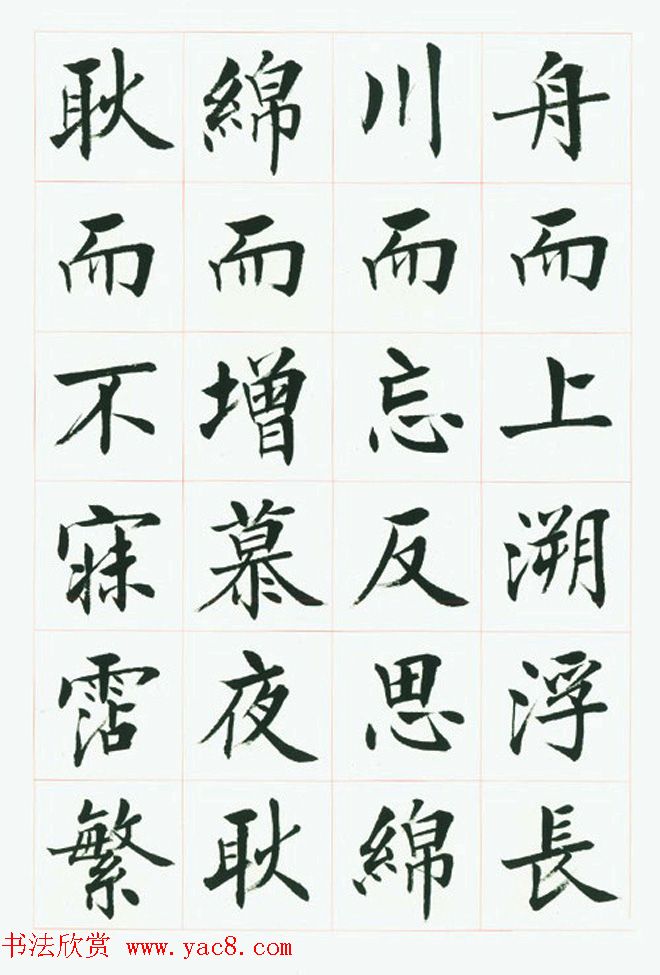 舟而上溯浮長
川而忘反思綿
綿而增慕夜耿
耿而不寐霑繁
书法欣赏 www.yac8.com